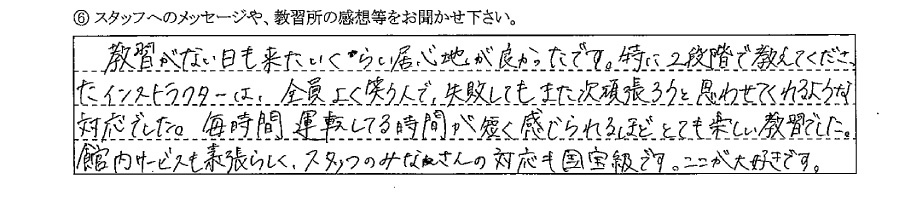 ⑥ スタッフへのメッセージや、教習所の感想等をお聞かせ下さい。
教習がない日も来たいくらい居心地が良かったです。特に2段階で教えてくださっ
たインストラクターは、全員よく笑う人で、失敗してもまた次頑張ろうと思わせてくれるような
対応でした。毎時間、運転してる時間が短く感じられるほどとても楽しい教習でした。
館内サービスも素張らしく、スタッフのみなさんの対応も国宝級です。ここが大好きです。